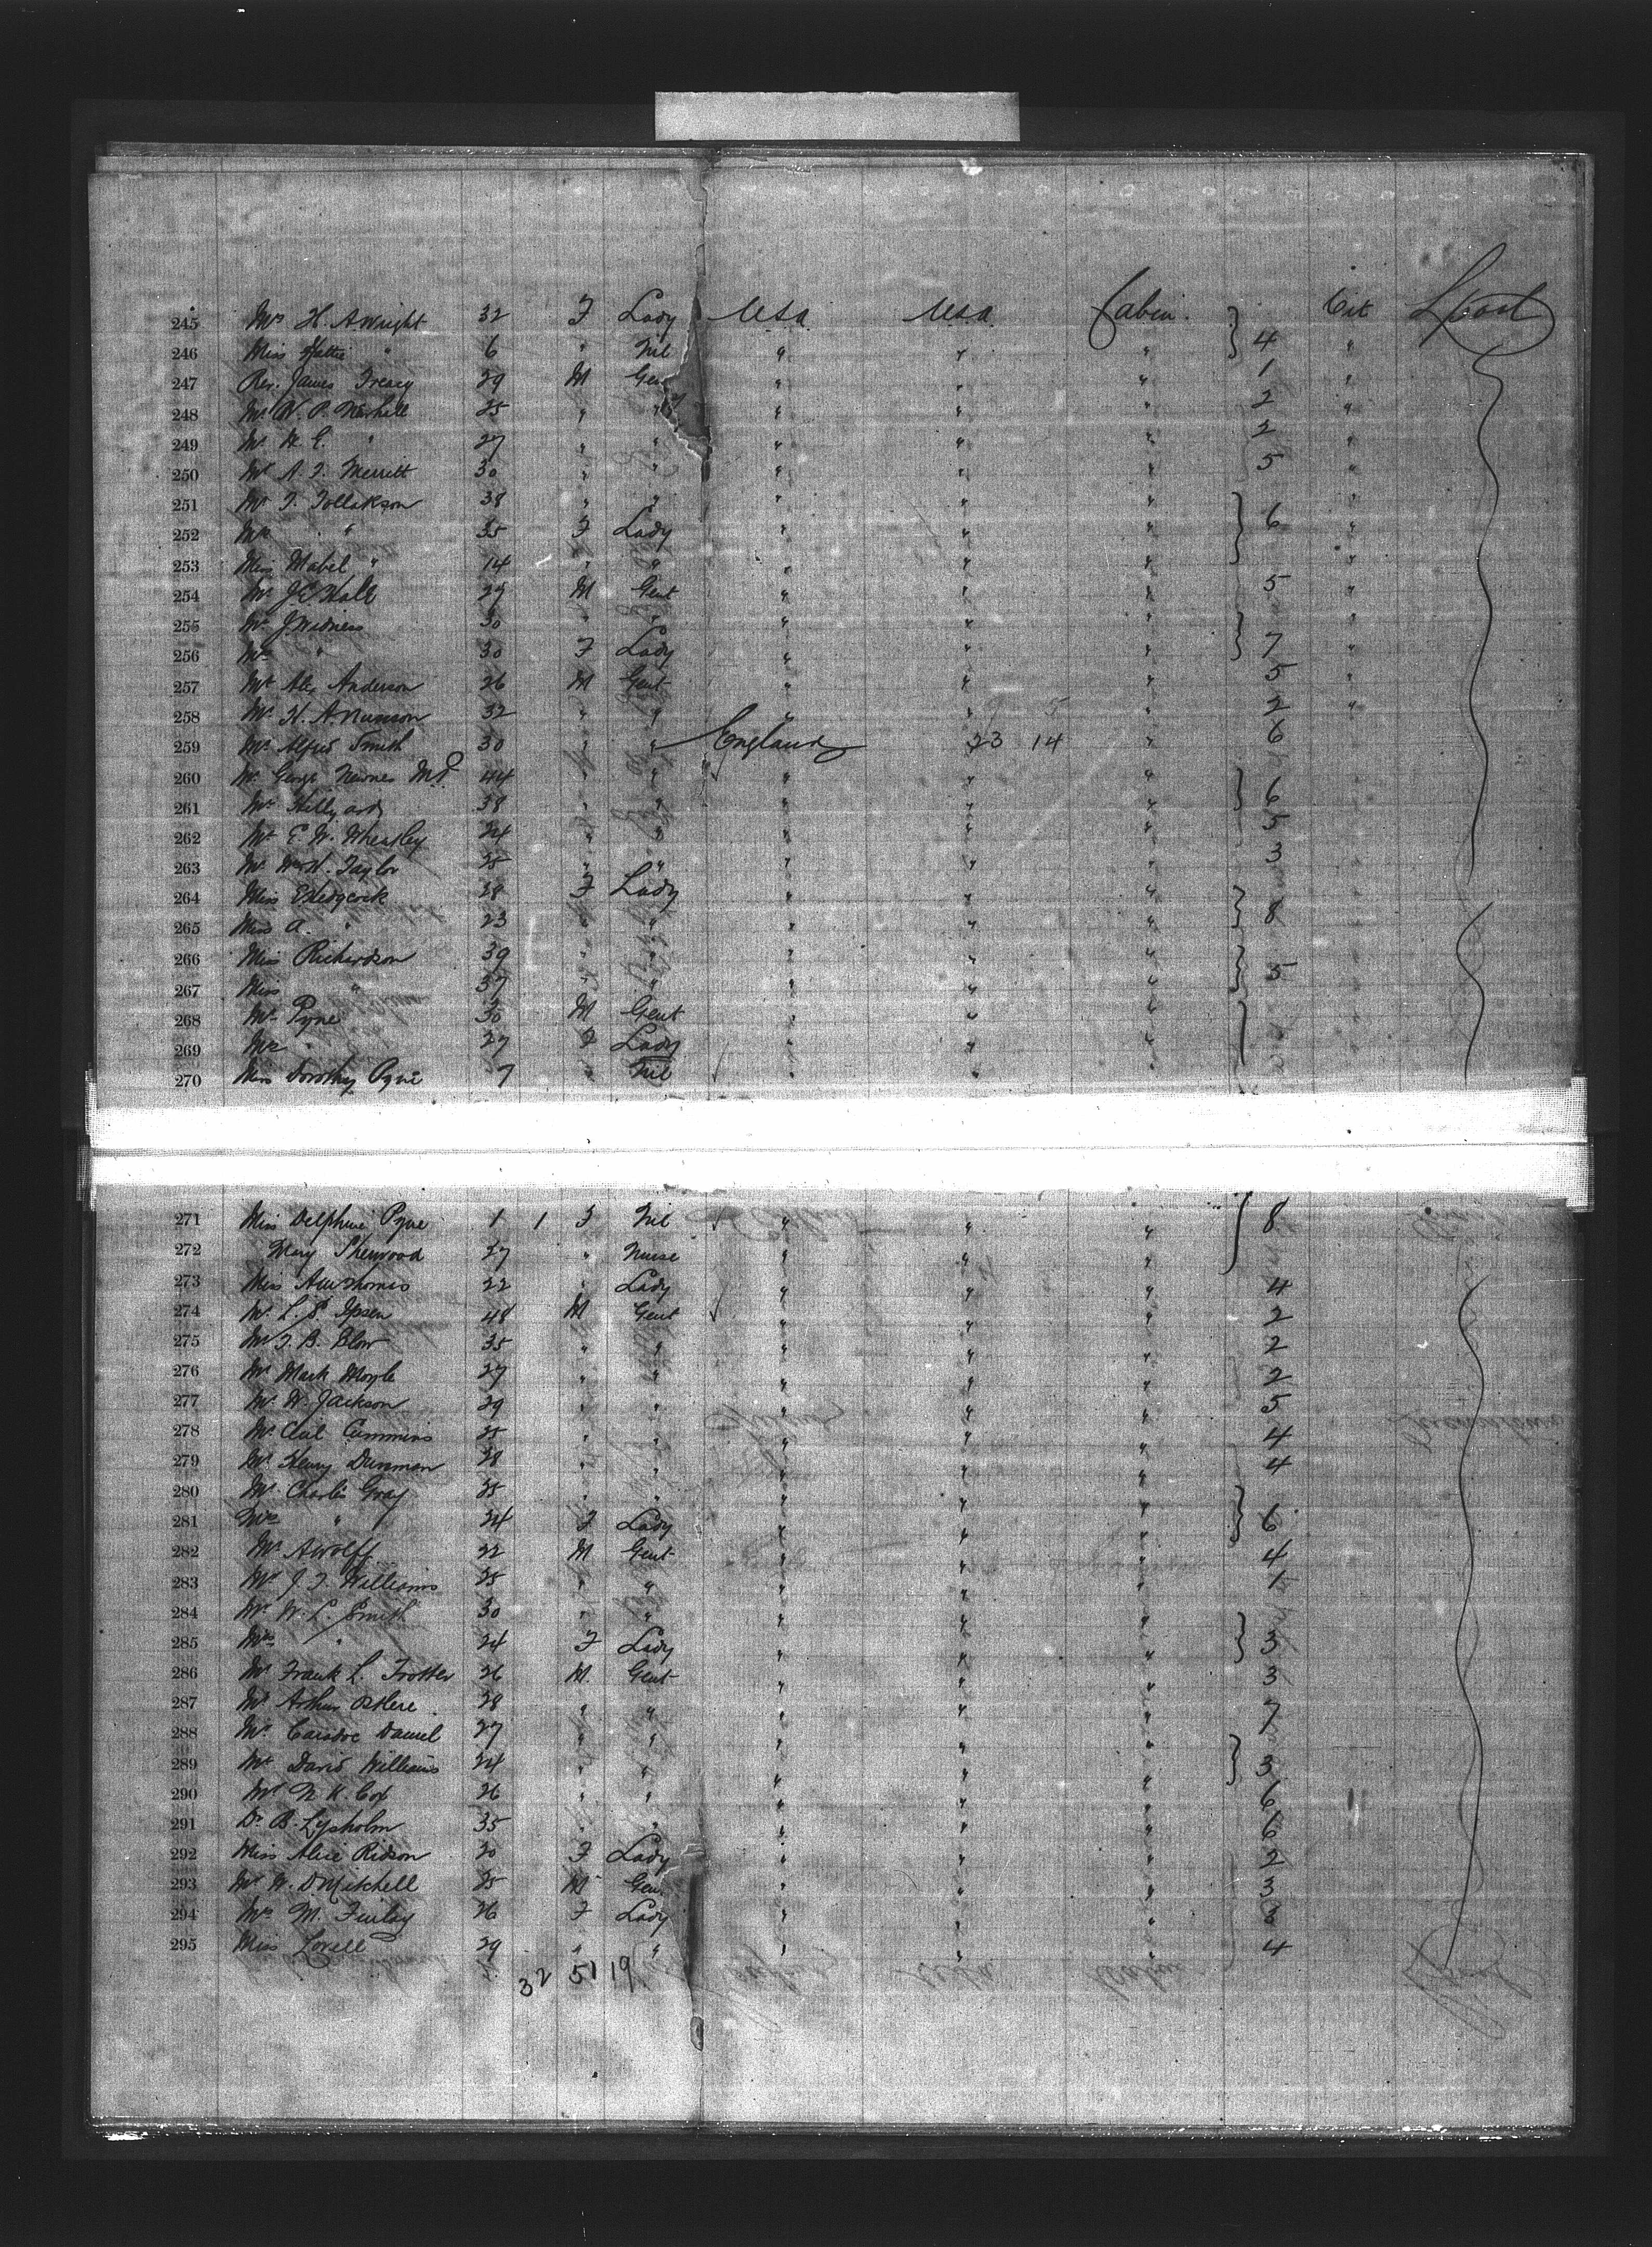 245 Mrs H. A Wright 32 F Lady USA USA Cabin } Cit L'pool
246 Miss Hattie " 6 " Nil " " " 4 "
247 Rev. James Treacy 29 M Gen " " " 1 "
248 Mr W. P. 25 " " " " " 2 "
249 Mr H E. " 27 " " " " " 2 "
250 Mr A. F. Merritt 30 " " " " " 5 "
251 Mr T. Tollakson 38 " " " " " } "
252 Mrs " 35 F Lady " " " 6 "
253 Miss Mabel " 14 " " " " " "
254 Mr J E Hall 29 M Gent " " " 5 "
255 Mr J Widness 30 " " " " " } "
256 Mrs " 30 F Lady " " " 7 "
257 Mr Alex Anderson 26 M Gent " " " 5 "
258 Mr H. A. Munson 32 " " " " " 2 "
259 Mr Alfred Smith 30 " " England 23 14 " 6
260 Mr George Newnes M.P. 44 " " " " " }
261 Mr Hillyard 38 " " " " " 6
262 Mr E. W. Wheatley 24 " " " " " 5
263 Mr Wm H. Taylor 25 " " " " " 3
264 Miss E Hedgcock 28 F Lady " " " }
265 Miss A. " 23 " " " " " 8
266 Miss Richardson 39 " " " " " }
267 Miss " 37 " " " " " 5
268 Mr Pyne 30 M Gent " " " }
269 Mrs " 27 F Lady " " "
270 Miss Dorothy Pyne 7 " Nil " " "
271 Miss Delphine Pyne 1 1 F Nil " " " } 8
272 Mary Sherwood 27 " Nurse " " "
273 Miss A M Thomas 22 " Lady " " " 4
274 Mr L. P. Ipsen 48 M Gent " " " 2
275 Mr T. B. Blow 35 " " " " " 2
276 Mr Mark Moyle 27 " " " " " 2
277 Mr W. Jackson 29 " " " " " 5
278 Mr Cummins 25 " " " " " 4
279 Mr Henry Dunman 28 " " " " " 4
280 Mr Charles Gray 25 " " " " " }
281 Mrs " 24 F Lady " " " 6
282 Mr A Wolff 22 M Gent " " " 4
283 Mr J. T. Williams 25 " " " " " 1
284 Mr W. L. Smith 30 " " " " " }
285 Mrs " 24 F Lady " " " 3
286 Mr Frank L. Trotter 26 M. Gent " " " 3
287 Mr Arthur Ostlere 28 " " " " " 7
288 Mr Caradoc Daniel 27 " " " " " }
289 Mr David Williams 24 " " " " " 3
290 Mr N. K. Cox 26 " " " " " 6
291 Dr B. Lysholm 35 " " " " " 6
292 Miss Alice Ridson 20 F Lady " " " 2
293 Mr W. D Mitchell 25 M Gen " " " 3
294 Mrs M. Finlay 26 F Lady " " " 3
295 Miss Lovell 29 " " " " " 4
32 51 19